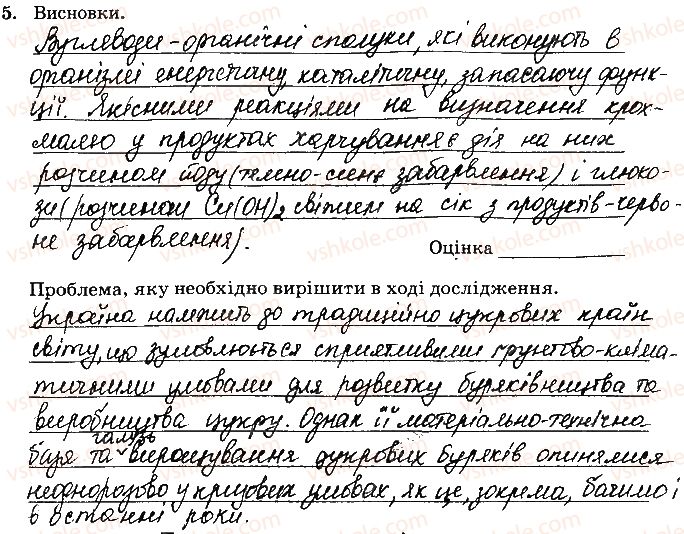 5. Висновки.
Вуглеводи – органічні сполуки, які виконують в
організмі енергетичну, каталітичну, запасаючу функ-
ції. Якісними реакціями на визначення крох-
малю у продуктах харчування є дія на них
розчином йоду (темно-синє забарвлення) і глюко-
зи (розчином Cu(OH)2 світлем на сік з продуктів – черво-
не забарвлення).
Оцінка
Проблема, яку необхідно вирішити в ході дослідження.
Україна належить до традиційно цукрових країн
світу, що зумовлюється сприятливими ґрунтово-кліма-
тичними умовами для розвитку буряківництва та
виробництва цукру. Однак її матеріально-технічна
база та галузь вирощування цукрових буряків опинялися
неодноразово у кризових умовах, як це, зокрема, бачимо і
в останні роки.